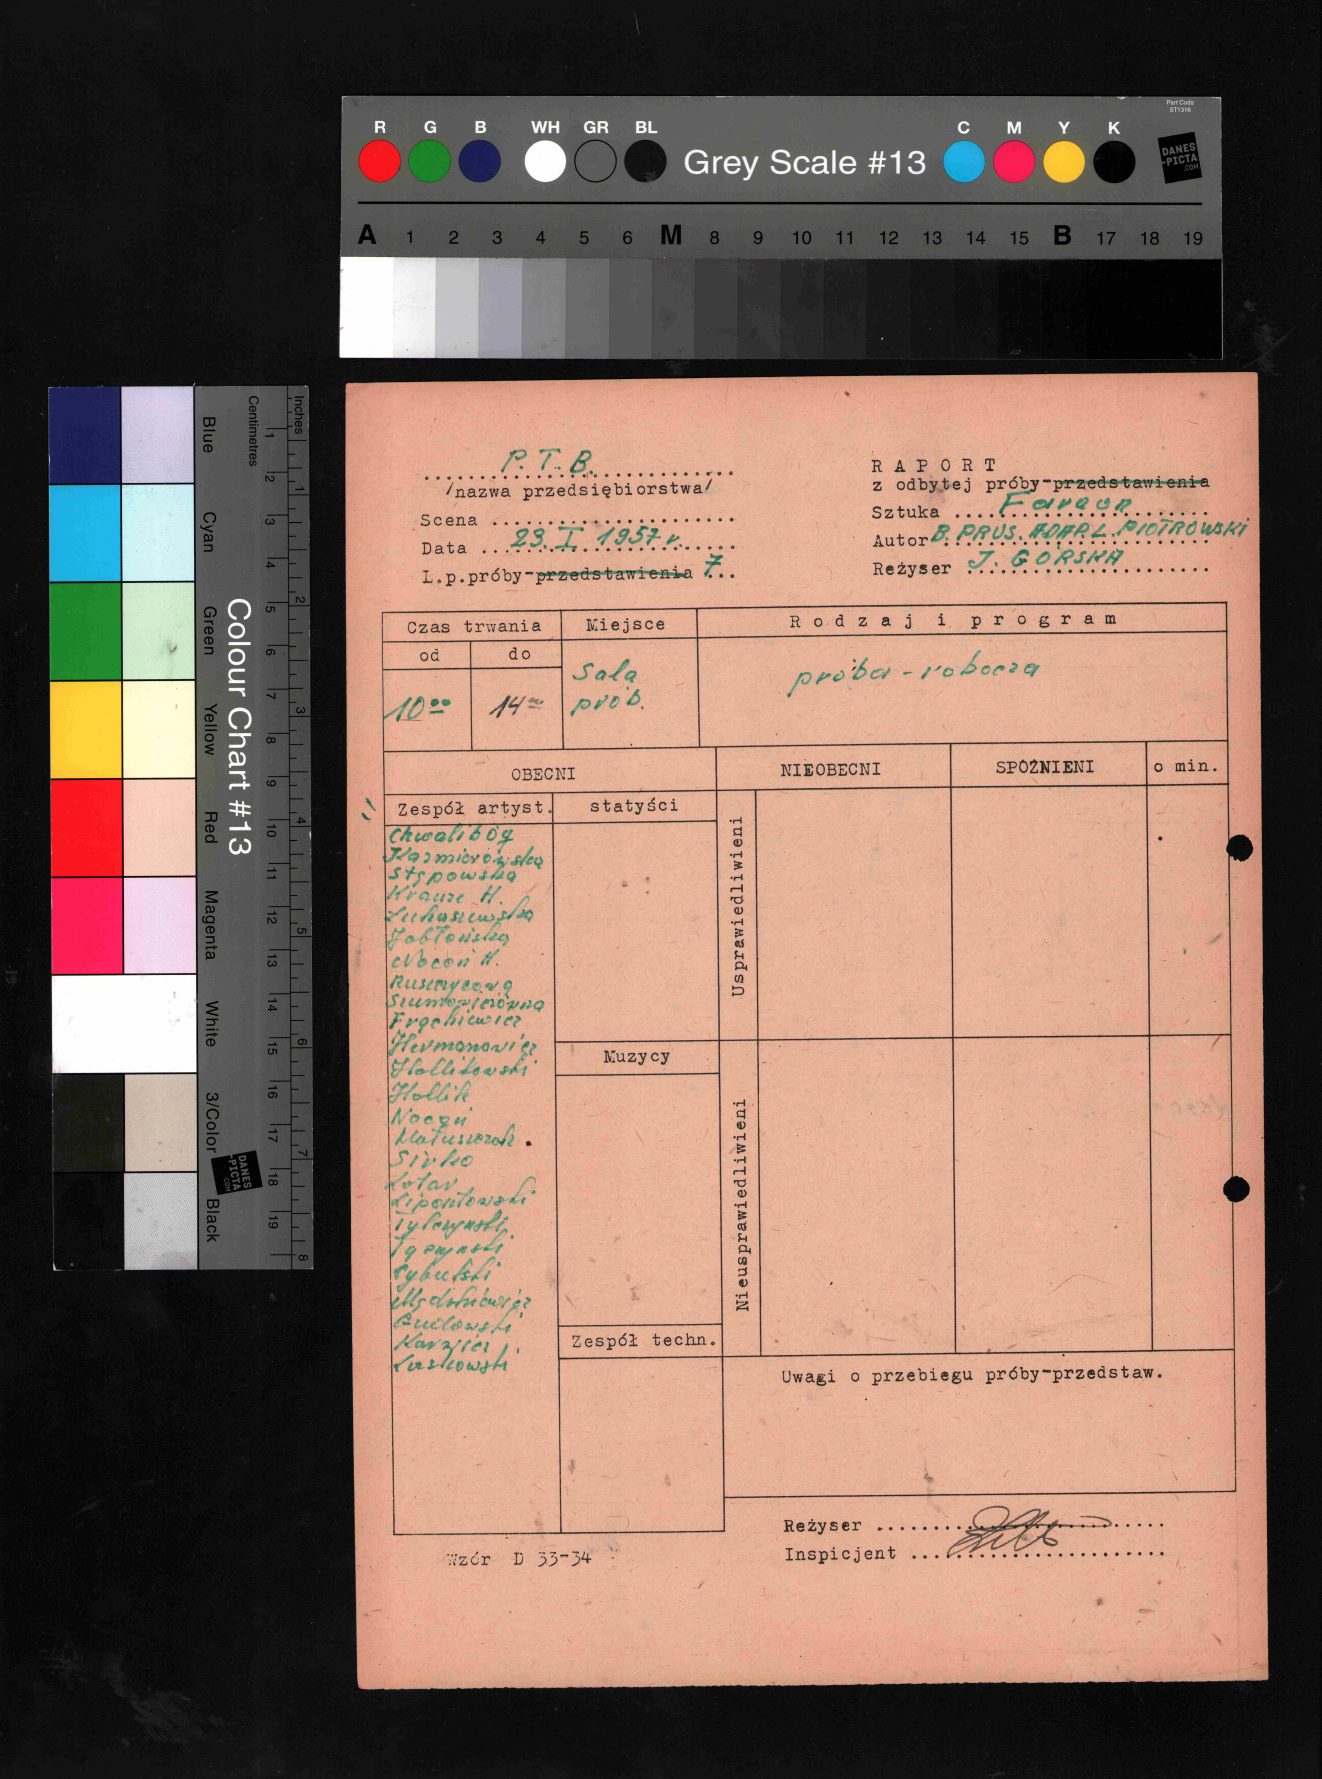 Part Code
ST1316
R G B WH GR BL Grey Scale #13 C M Y K
DANES
-PICTA
.COM
A 1 2 3 4 5 6 M 8 9 10 11 12 13 14 15 B 17 18 19
Colour Chart #13
Blue Cyan Green Yellow Red Magenta White 3/Color Black
Centimetres 1 2 3 4 5 6 7 8 9 10 11 12 13 14 15 16 17 18 19
Inches 1 2 3 4 5 6 7 8
DANES
-PICTA
.COM
P. T. B.
/nazwa przedsiębiorstwa/
Scena
Data 23. I 1957 r.
L.p.próby-przedstawienia 7
RAPORT
z odbytej próby-przedstawienia
Sztuka Faraon
Autor B. PRUS. ADAP. L. PIOTROWSKI
Reżyser J. GÓRSKA
Czas trwania Miejsce Rodzaj i program
od do
10⁰⁰ 14⁰⁰
Sala
prób.
próba - robocza
OBECNI NIEOBECNI SPÓŹNIENI o min.
Zespół artyst. statyści
Usprawiedliwieni
Chwalibóg
Kaźmierowska
Stępowska
Krauze H.
Łukaszewska
Jabłońska
Nocoń H.
Ruszczycowa
Szumowiczówna
Frąckiewicz
Hermanowicz
Hollitowski
Hollik
Nocoń
Matuszczak
Sirko
Lotar
Lipontowski
Tylczyński
Tęczyński
Cybulski
Karzicz
Laskowski
Muzycy
Nieusprawiedliwieni
Zespół techn.
Uwagi o przebiegu próby-przedstaw.
Reżyser
Inspicjent
Wzór D 33-34